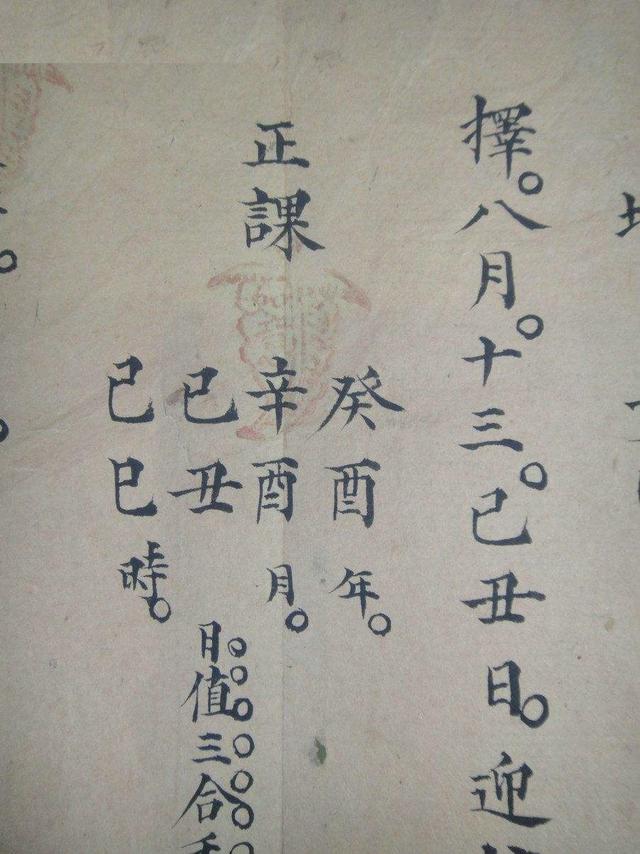 擇。八月。十三。己丑日。迎
正課
癸酉年。
辛酉月。
己丑日。值。三合
己巳時。